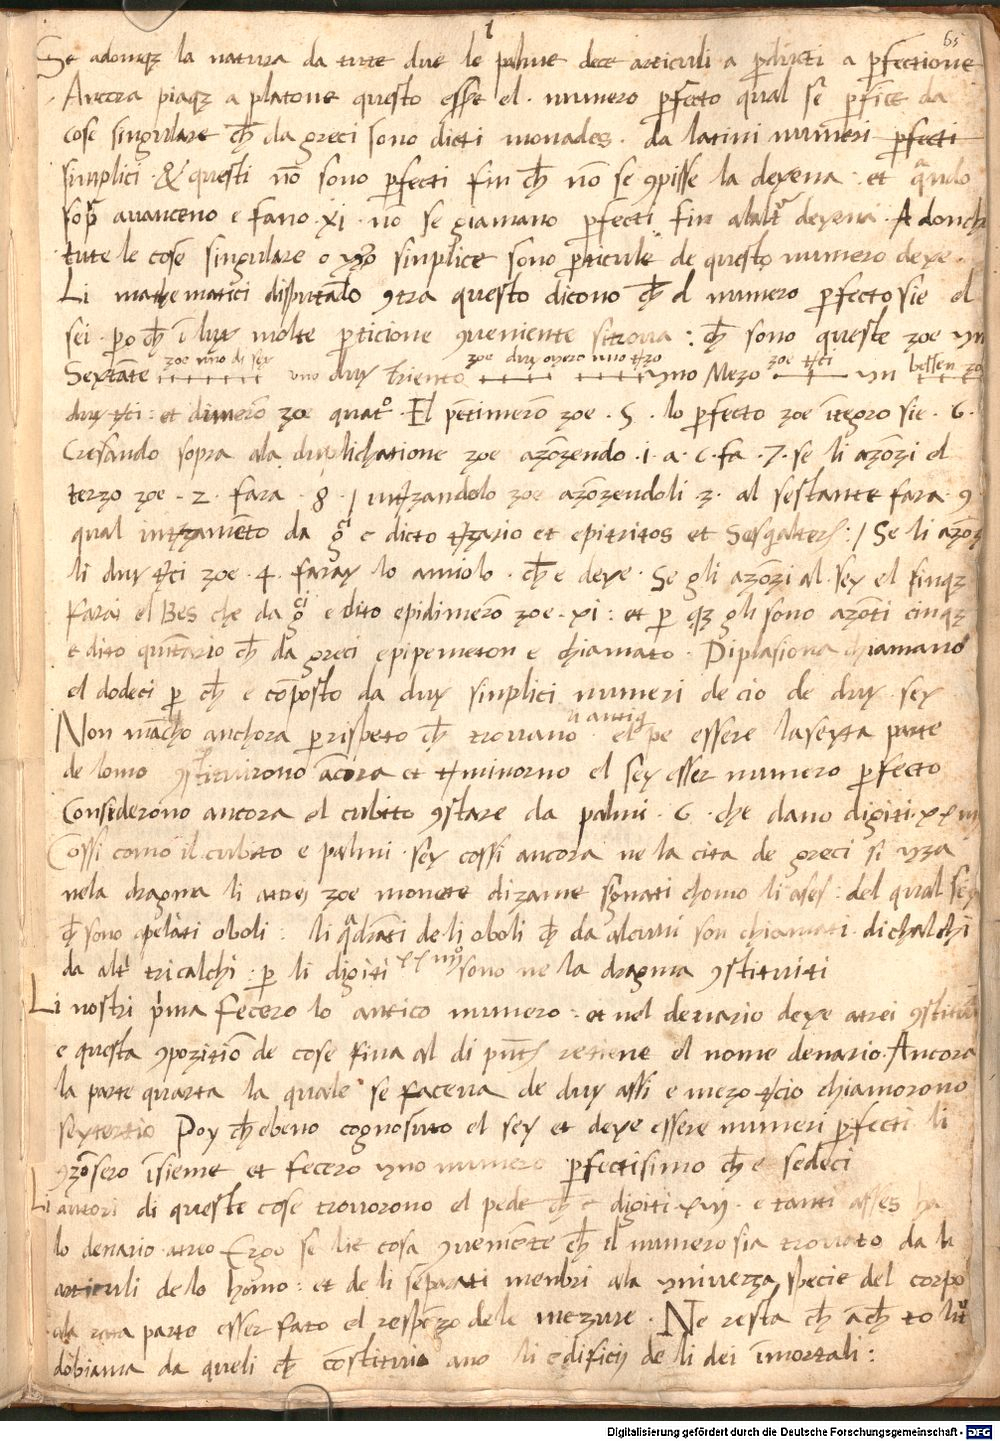 1
65
Se adonqz la natura da tute due le palme dece articuli a produti a perfectione
Ancora piaqz a platone questo esse el . numero perfecto qual se perfice da
cose singulare che da greci sono dicti monades . da latini numeri perfecti
simplici . & questi non sono perfecti fin che non se compisse la dexena : et quando
sopra avanceno e fano . xi . non se giamano perfecti fin alaltra dexena . A donch
tute le cose singulare o vero sinplice sono perticule de questo numero dexe .
Li mathematici disputando contra questo dicono che el numero perfecto sie el
sei . pero che in luy molte perticione conveniente sitrova : che sono queste zoe un
zoe uno di sey zoe duy overo uno terzo zoe terci bessen zo
Sextante uno duy triento uno Mezo un
duy terci : et dimero zoe quatro . El pentimero zoe . 5 . lo perfecto zoe integro sie . 6 .
Cresando sopra ala duplichatione zoe azonzendo . i . a . 6 . fa . 7 . se li azonzi el
terzo zoe . 2 . fara . 8 . / interzandolo zoe azonzendoli . 3 . al sestante fara . 9
qual interzamento da greci e dicto terzario et epitritos et Sesqalter : / Se li azonzi
li duy terci zoe . 4 . faray lo amiolo . che e dexe . Se gli azonzi al . sey el sinqz
farai el Bes che da greci e dito epidimero zoe . xi : et per qz gli sono azonti cinqz
e dito quintario che da greci epipemeton e chiamato . Diplasiona chiamano
el dodeci per che e composto da duy sinplici numeri de cio de duy . sey
li antiqi
Non mancho anchora per rispeto che trovano el pe essere la sexta parte
de lomo constituirono ancora et terminorno el sey esser numero perfecto
Considerono ancora el cubito constare da palmi . 6 . che dano digiti . xxiiii
Cossi como il cubito e palmi . sey cossi ancora ne la cita de greci si uza
nela dragma li atrei zoe monete dizame segnati chomo li ases : del qual sey
che sono apelati oboli : li quadrati de li oboli che da alcuni son chiamati . dichalchi
da altri tricalchi : per li digiti xxiiii sono ne la dragma constituiti
Li nostri prima fecero lo antico numero : et nel denario dexe atrei constituiti
e questa compozition de cose fina al di retiene el nome denario . Ancora
la parte quarta la quale se faceva de duy assi e mezo tercio chiamorono
sextertio Poy che ebeno cognosuto el sey et dexe essere numeri perfecti li
conzosero insieme et fecero uno numero perfectisimo che e sedeci
Li autori di queste cose trovorono el pede che e digiti . xvi . e tanti asses ha
lo denario atreo Ergo se lie cosa conveniente che il numero sia trovato da li
articuli de lo homo : et de li separati menbri ala universa specie del corpo
ala rata parte esser fato el respenzo dele mezure . Ne resta che anche to lur
dobiama da queli che constituirno li edificij de li dei imortali :
Digitalisierung gefördert durch die Deutsche Forschungsgemeinschaft - DFG